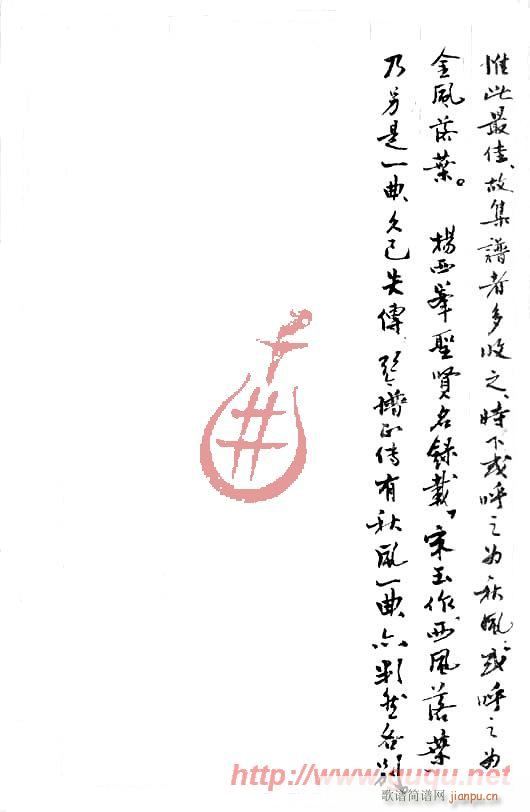 惟此最佳、故集譜者多收之、時下或呼之为秋風、或呼之为
金風落葉。 楊西峯聖賢名録載，宋玉作西風落葉
乃另是一曲、久已失傳 琴譜正傳有秋風一曲、亦判然各別
http://www.ququ.net
歌谱简谱网
jianpu.cn